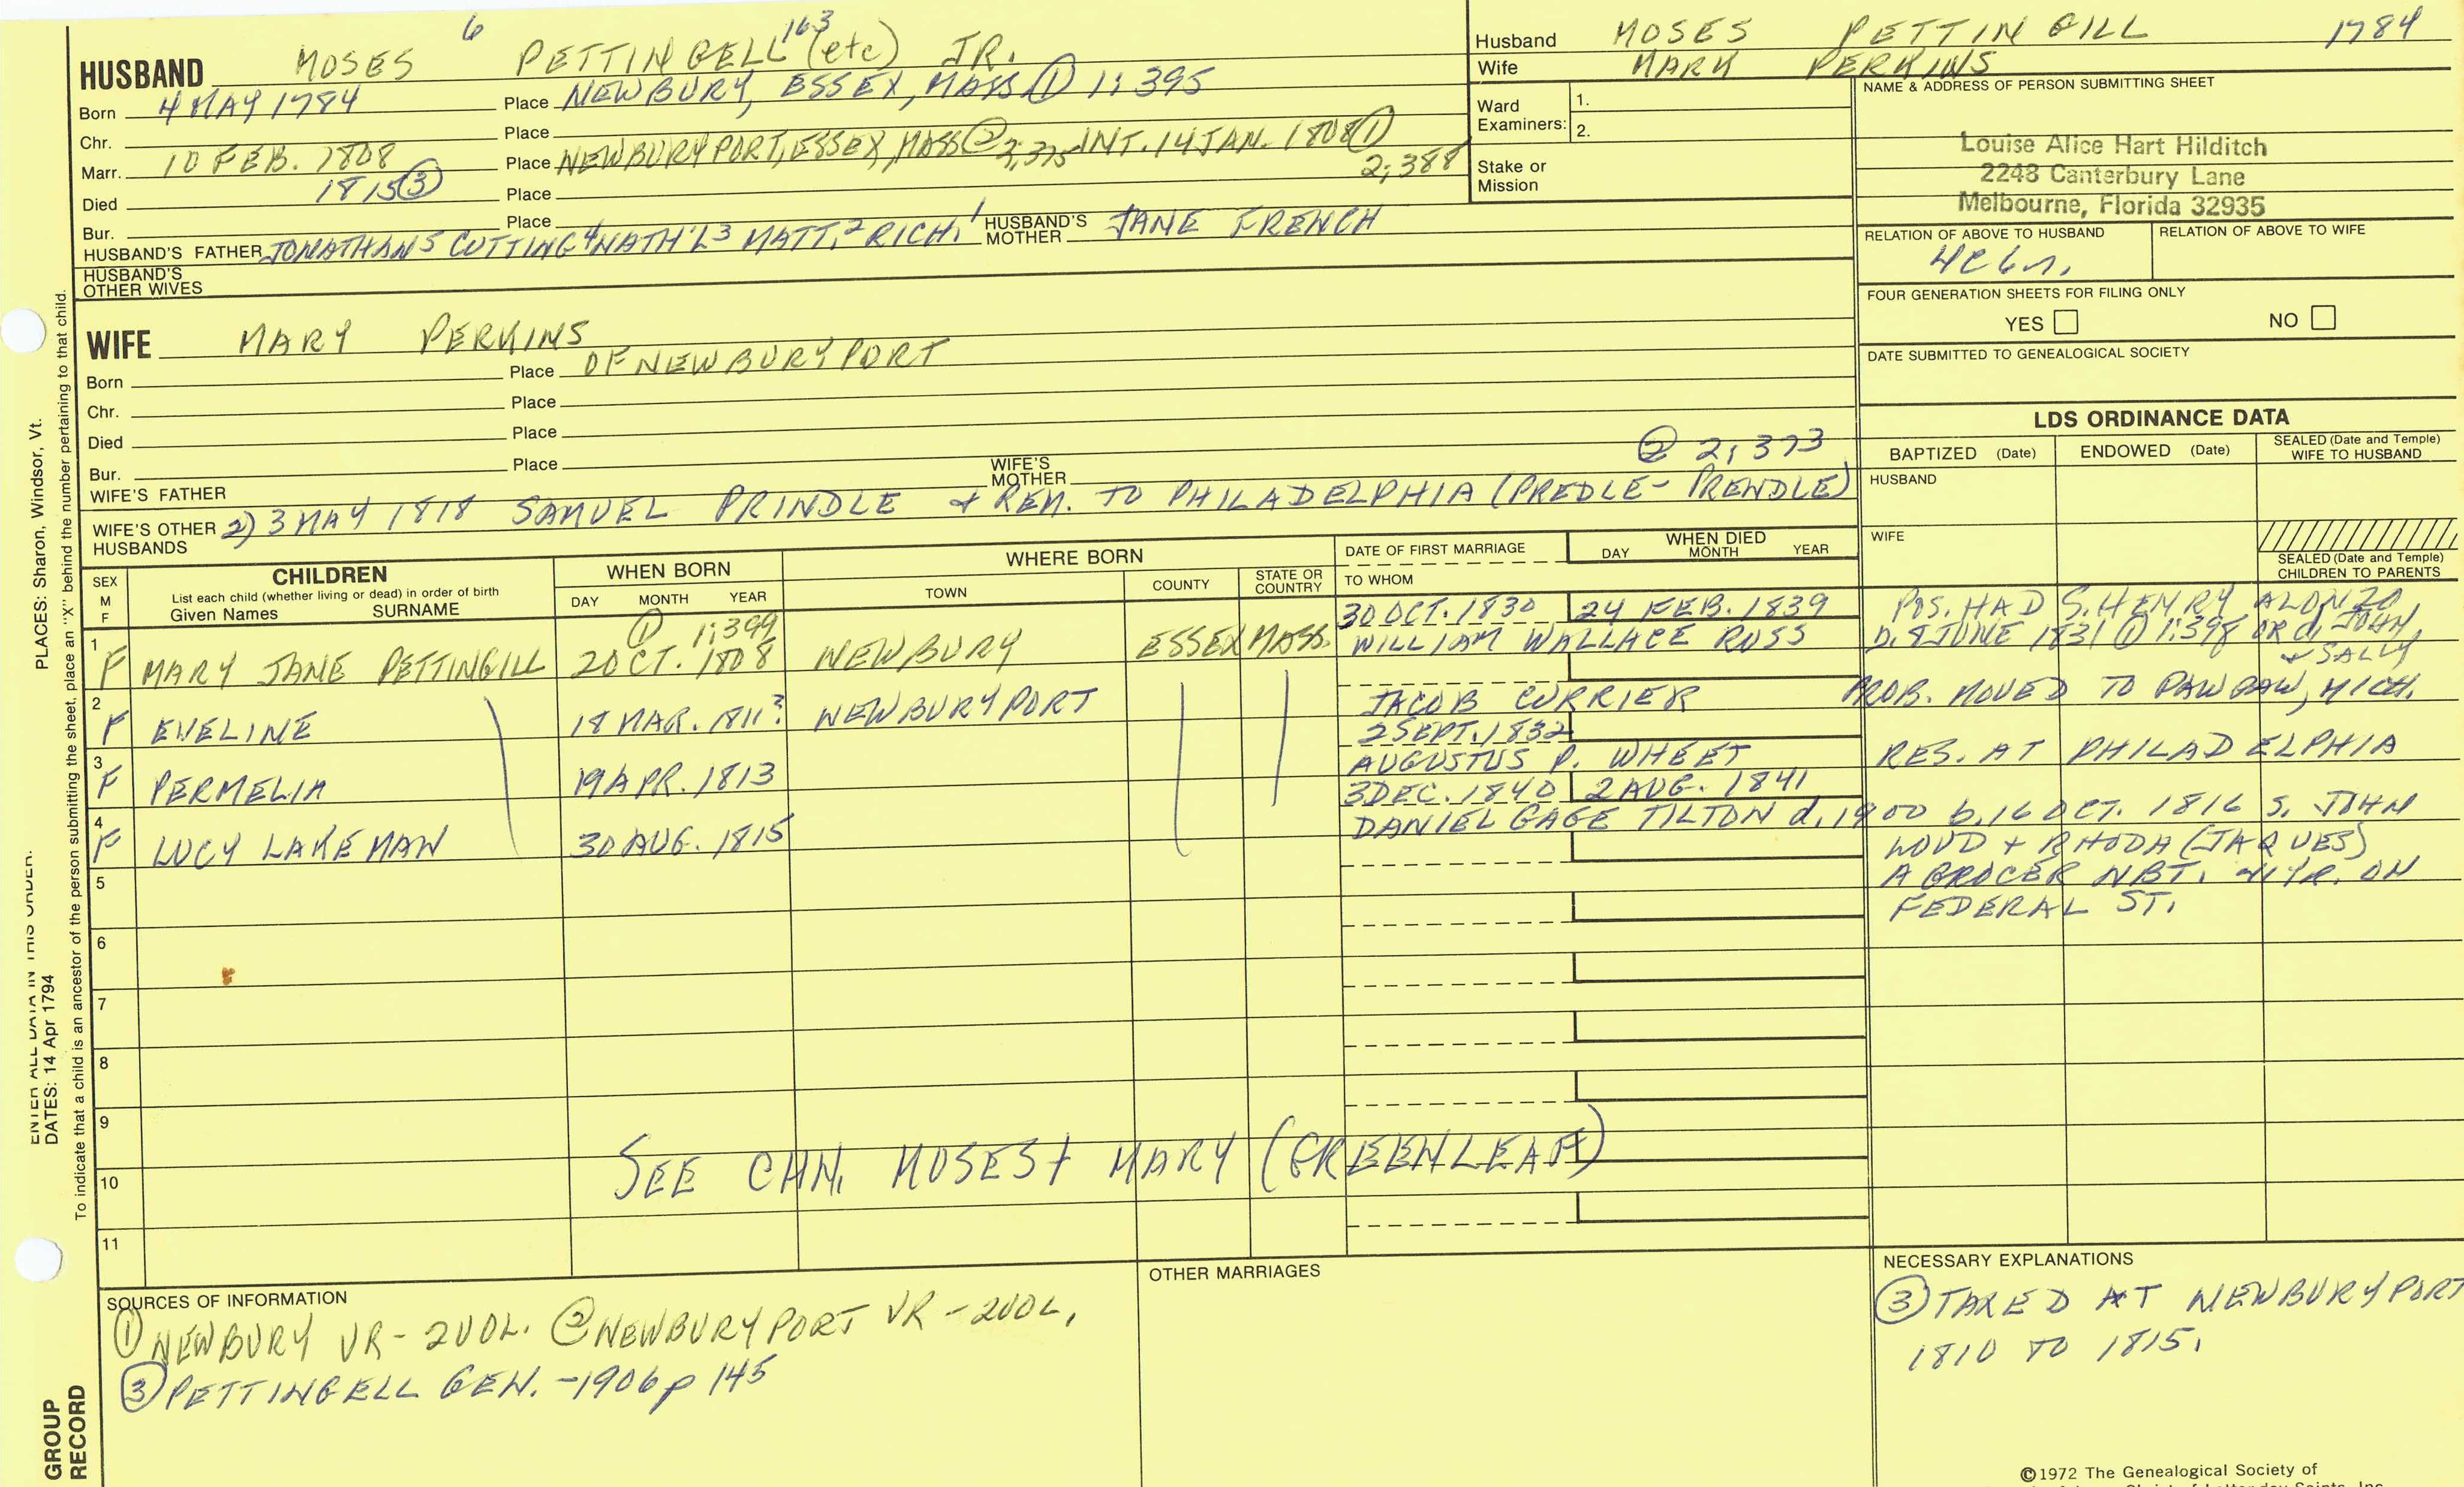 6 163
HUSBAND MOSES PETTINGELL (etc) JR.
Born 4 MAY 1784 Place NEWBURY, ESSEX, MASS ① 1:395
Chr. Place
Marr. 10 FEB. 1808 Place NEWBURYPORT, ESSEX, MASS ② 2;375 INT. 14 JAN. 1808 ①
2;388
Died 1815 ③ Place
Bur. Place
HUSBAND'S FATHER JONATHAN 5 CUTTING 4 NATH'L 3 MATT. 2 RICH. 1 HUSBAND'S MOTHER JANE FRENCH
HUSBAND'S OTHER WIVES
Husband MOSES PETTINGILL 1784
Wife MARY PERKINS
Ward Examiners: 1.
2.
Stake or Mission
NAME & ADDRESS OF PERSON SUBMITTING SHEET
Louise Alice Hart Hilditch
2248 Canterbury Lane
Melbourne, Florida 32935
RELATION OF ABOVE TO HUSBAND RELATION OF ABOVE TO WIFE
FOUR GENERATION SHEETS FOR FILING ONLY
YES NO
DATE SUBMITTED TO GENEALOGICAL SOCIETY
WIFE MARY PERKINS
Born Place OF NEWBURYPORT
Chr. Place
Died Place
Bur. Place
② 2;373
WIFE'S FATHER WIFE'S MOTHER
WIFE'S OTHER HUSBANDS 2) 3 MAY 1818 SAMUEL PRINDLE + REM. TO PHILADELPHIA (PREDLE- PRENDLE)
LDS ORDINANCE DATA
BAPTIZED (Date) ENDOWED (Date) SEALED (Date and Temple) WIFE TO HUSBAND
HUSBAND
WIFE
SEALED (Date and Temple) CHILDREN TO PARENTS
SEX M F
CHILDREN
List each child (whether living or dead) in order of birth
Given Names SURNAME
WHEN BORN
DAY MONTH YEAR
WHERE BORN
TOWN COUNTY STATE OR COUNTRY
DATE OF FIRST MARRIAGE
TO WHOM
WHEN DIED
DAY MONTH YEAR
① 1:399 30 OCT. 1830 24 FEB. 1839 POS. HAD S. HENRY ALONZO
1 F MARY JANE PETTINGILL 2 OCT. 1808 NEWBURY ESSEX MASS. WILLIAM WALLACE ROSS D. 8 JUNE 1831 ① 1:398 OR d. JOHN
+ SALLY
2 F EVELINE 18 MAR. 1811? NEWBURYPORT JACOB CURRIER PROB. MOVED TO PAWPAW, MICH.
2 SEPT. 1832
3 F PERMELIA 19 APR. 1813 AUGUSTUS P. WHEET RES. AT PHILADELPHIA
3 DEC. 1840 2 AUG. 1841
4 F LUCY LAKEMAN 30 AUG. 1815 DANIEL GAGE TILTON d. 1900 b. 16 OCT. 1816 S. JOHN
+ RHODA (JAQUES)
A GROCER NBT. ON
FEDERAL ST.
5
6
7
8
9
10 SEE CHN. MOSES + MARY (GREENLEAF)
11
SOURCES OF INFORMATION
① NEWBURY VR - 2 VOL. ② NEWBURYPORT VR - 2 VOL.
③ PETTINGELL GEN. - 1906 p 145
OTHER MARRIAGES
NECESSARY EXPLANATIONS
③ TAXED AT NEWBURYPORT
1810 TO 1815.
©1972 The Genealogical Society of
PLACES: Sharon, Windsor, Vt.
To indicate that a child is an ancestor of the person submitting the sheet, place an "X" behind the number pertaining to that child.
ENTER ALL DATA IN THIS ORDER:
DATES: 14 Apr 1794
GROUP
RECORD